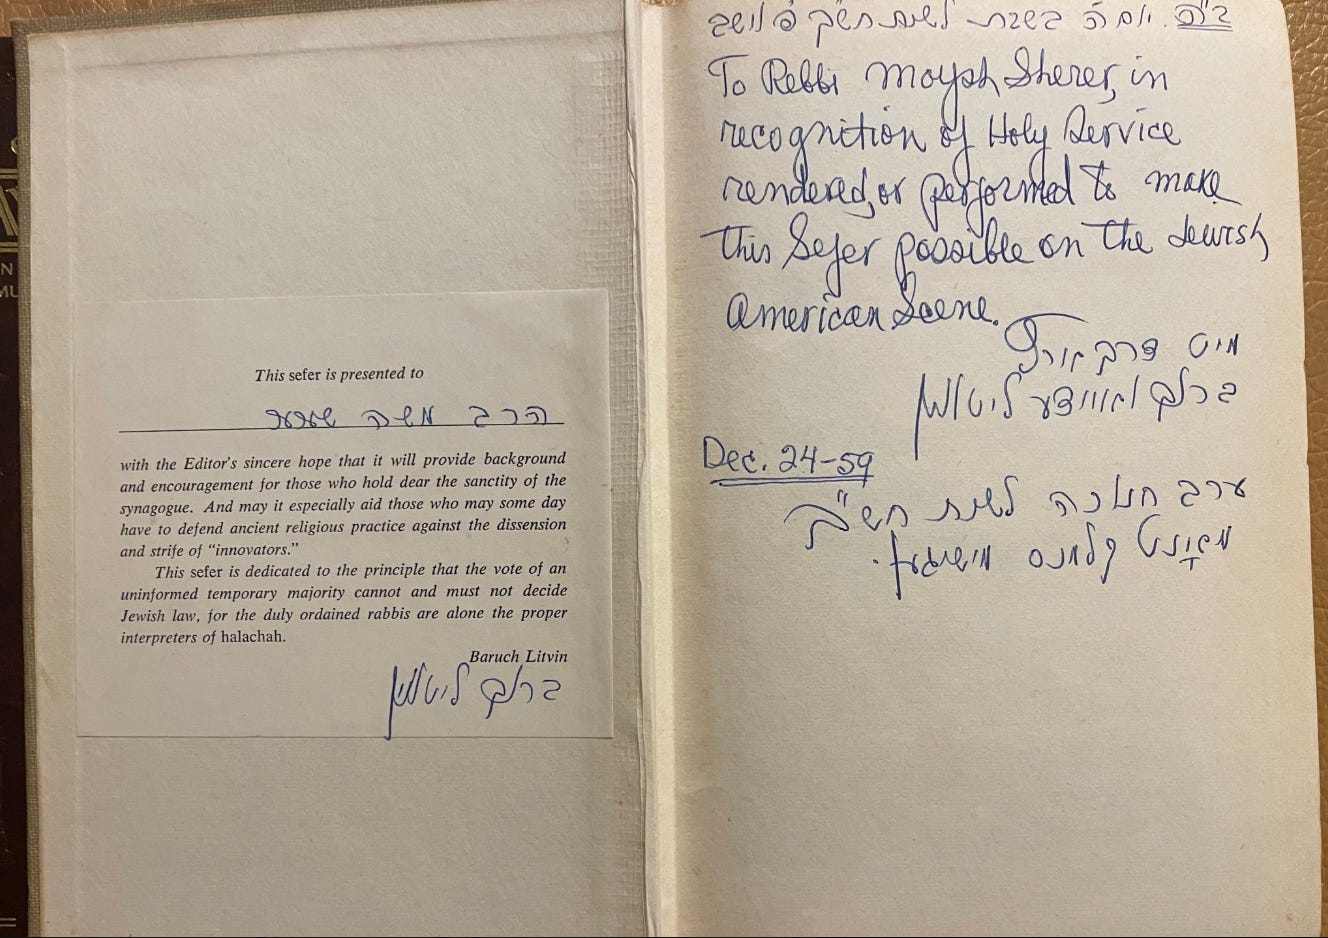 This sefer is presented to
הרב משה שערער
with the Editor's sincere hope that it will provide background
and encouragement for those who hold dear the sanctity of the
synagogue. And may it especially aid those who may some day
have to defend ancient religious practice against the dissension
and strife of “innovators.”
This sefer is dedicated to the principle that the vote of an
uninformed temporary majority cannot and must not decide
Jewish law, for the duly ordained rabbis are alone the proper
interpreters of halachah.
Baruch Litvin
ברוך ליטווין
ב"ה. יום ה' בשבת לשנת תש"ך פ' וישב
To Rebbi Moysh Sherer, in
recognition of Holy Service
rendered, or performed to make
this Sefer possible on the Jewish
American Scene.
מיט דרך ארץ
ברוך ליטווין
Dec. 24-59
ערב חנוכה לשנת תש"ך
קלמנס מישיגען.